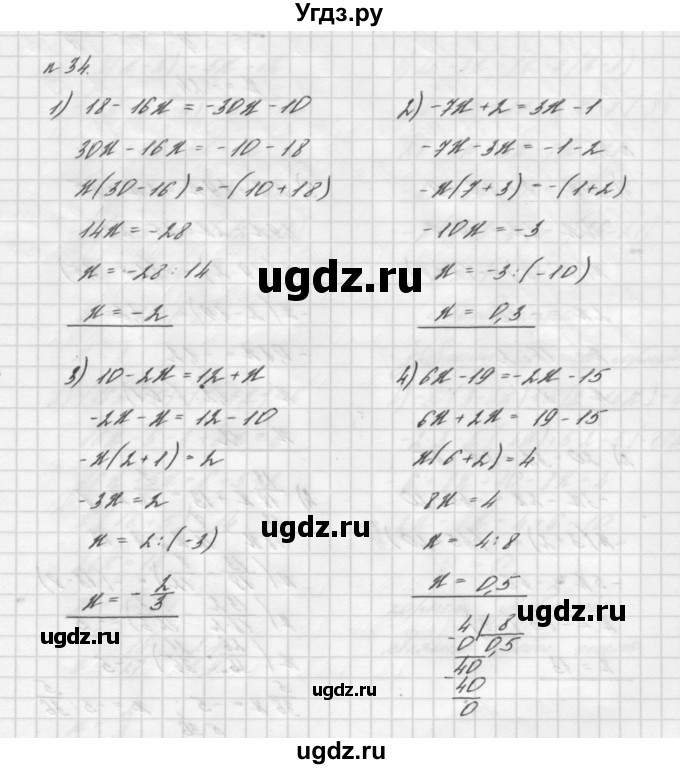 Угдз.ру
n 34.
1) 18 - 16x = -30x - 10
30x - 16x = -10 - 18
x(30 - 16) = -(10 + 18)
14x = -28
x = -28 : 14
x = -2
2) -7x + 2 = 3x - 1
-7x - 3x = -1 - 2
-x(7 + 3) = -(1 + 2)
-10x = -3
x = -3 : (-10)
x = 0,3
ugdz.ru
3) 10 - 2x = 12 + x
-2x - x = 12 - 10
-x(2 + 1) = 2
-3x = 2
x = 2 : (-3)
x = - 2/3
ugdz.ru
ugdz.ru
4) 6x - 19 = -2x - 15
6x + 2x = 19 - 15
x(6 + 2) = 4
8x = 4
x = 4 : 8
x = 0,5
ugdz.ru
4 | 8
- 0 0,5
40
- 40
0
ugdz.ru
ugdz.ru